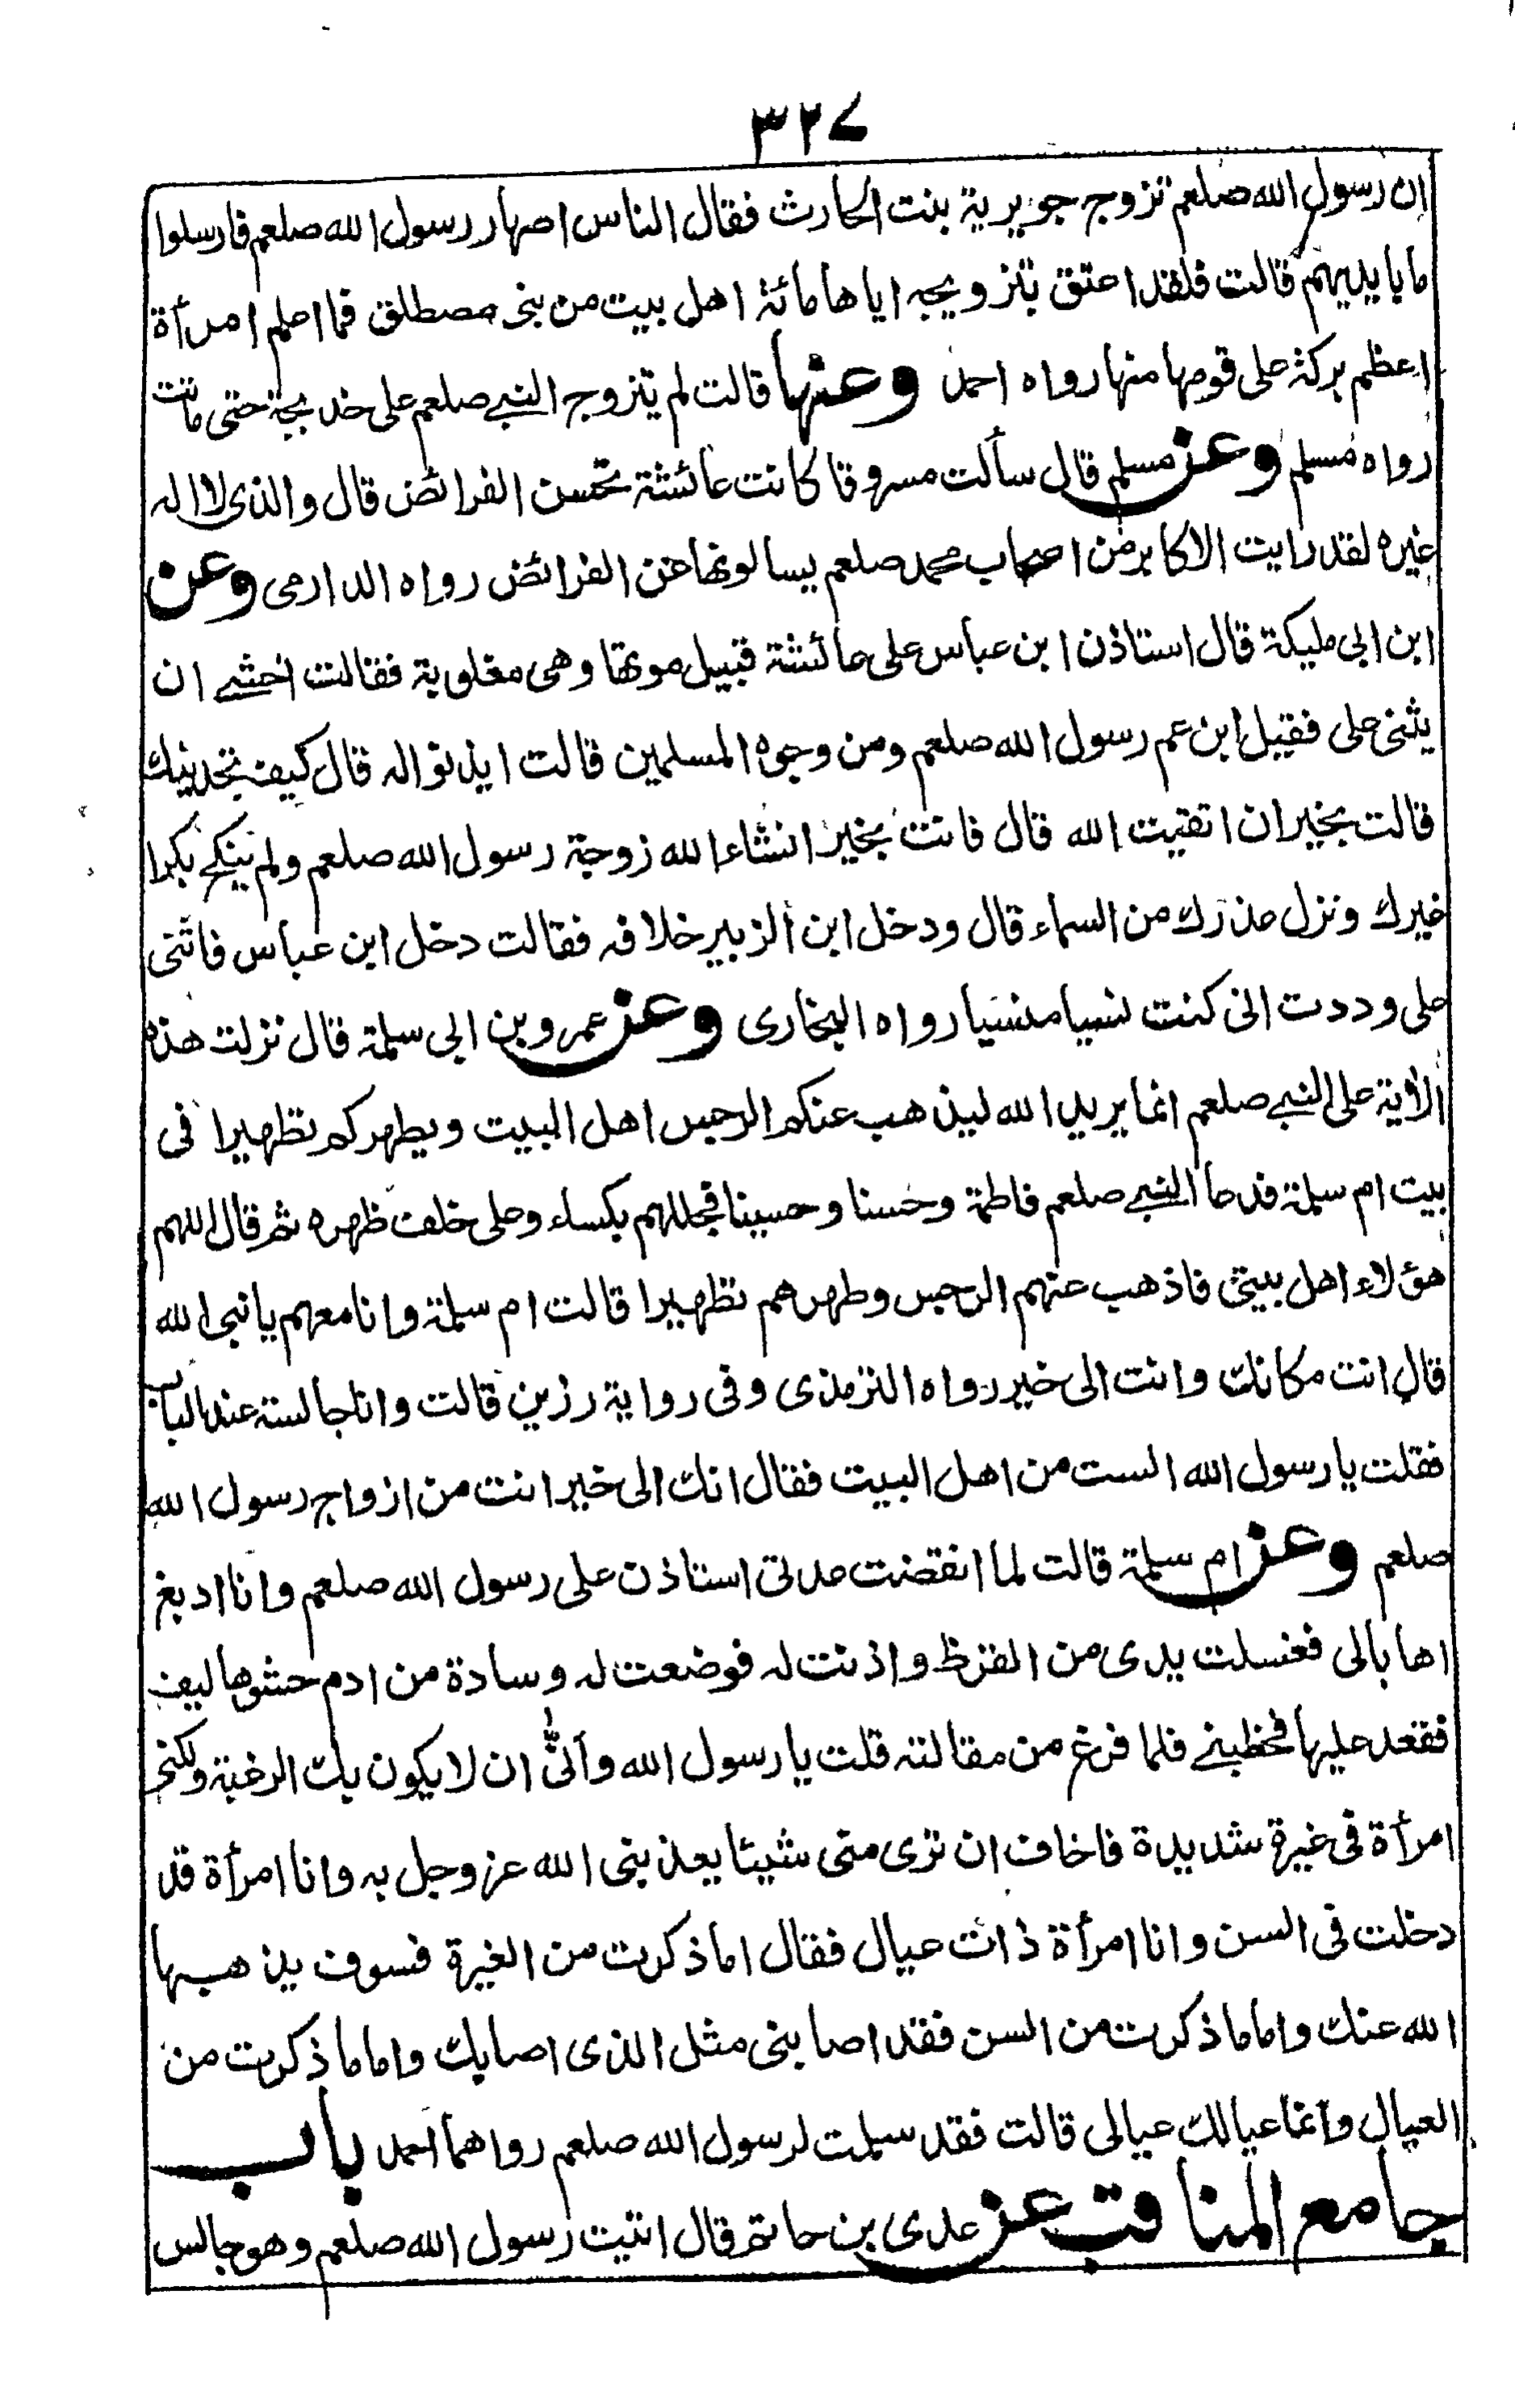 ٣٢٧
ان رسول الله صلعم تزوج جويرية بنت الحارث فقال الناس اصهار رسول الله صلعم فارسلوا
ما بايديهم قالت فلقد اعتق بتزويجه اياها مائة اهل بيت من بنى مصطلق فما اعلم امرأة
اعظم بركة على قومها منها رواه احمد وعنها قالت لم يتزوج النبي صلعم على خديجة حتى ماتت
رواه مسلم وعن مسلم قال سألت مسروقا كانت عائشة تحسن الفرائض قال والذى لا اله
غيره لقد رايت الاكابر من اصحاب محمد صلعم يسالونها عن الفرائض رواه الدارمى وعن
ابن ابى مليكة قال استاذن ابن عباس على عائشة قبيل موتها وهى مغلوبة فقالت اخشى ان
يثنى على فقيل ابن عم رسول الله صلعم ومن وجوه المسلمين قالت ايذنوا له قال كيف تجدينك
قالت بخير ان اتقيت الله قال فانت بخير انشاء الله زوجة رسول الله صلعم ولم ينكح بكرا
غيرك ونزل عذرك من السماء قال ودخل ابن الزبير خلافه فقالت دخل ابن عباس فاثنى
على وددت انى كنت نسيا منسيا رواه البخارى وعن عمرو بن ابى سلمة قال نزلت هذه
الاية على النبي صلعم انما يريد الله ليذهب عنكم الرجس اهل البيت ويطهركم تطهيرا فى
بيت ام سلمة فدعا النبي صلعم فاطمة وحسنا وحسينا فجللهم بكساء وعلى خلف ظهره ثم قال اللهم
هؤلاء اهل بيتى فاذهب عنهم الرجس وطهرهم تطهيرا قالت ام سلمة وانا معهم يا نبى الله
قال انت مكانك وانت الى خير رواه الترمذى وفى رواية رزين قالت وانا جالسة عند الباب
فقلت يا رسول الله الست من اهل البيت فقال انك الى خير انت من ازواج رسول الله
صلعم وعن ام سلمة قالت لما انقضت عدتى استاذن على رسول الله صلعم وانا ادبغ
اهابا لى فغسلت يدى من القرظ واذنت له فوضعت له وسادة من ادم حشوها ليف
فقعد عليها فخطبنى فلما فرغ من مقالته قلت يا رسول الله وانى ان لا يكون بك الرغبة ولكنى
امرأة فى غيرة شديدة فاخاف ان ترى منى شيئا يعذبنى الله عز وجل به وانا امرأة قد
دخلت فى السن وانا امرأة ذات عيال فقال اما ذكرت من الغيرة فسوف يذهبها
الله عنك واما ما ذكرت من السن فقد اصابنى مثل الذى اصابك واما ما ذكرت من
العيال وانما عيالك عيالى قالت فقد سلمت لرسول الله صلعم رواهما احمد باب
جامع المناقب عن عدى بن حاتم قال اتيت رسول الله صلعم وهو جالس